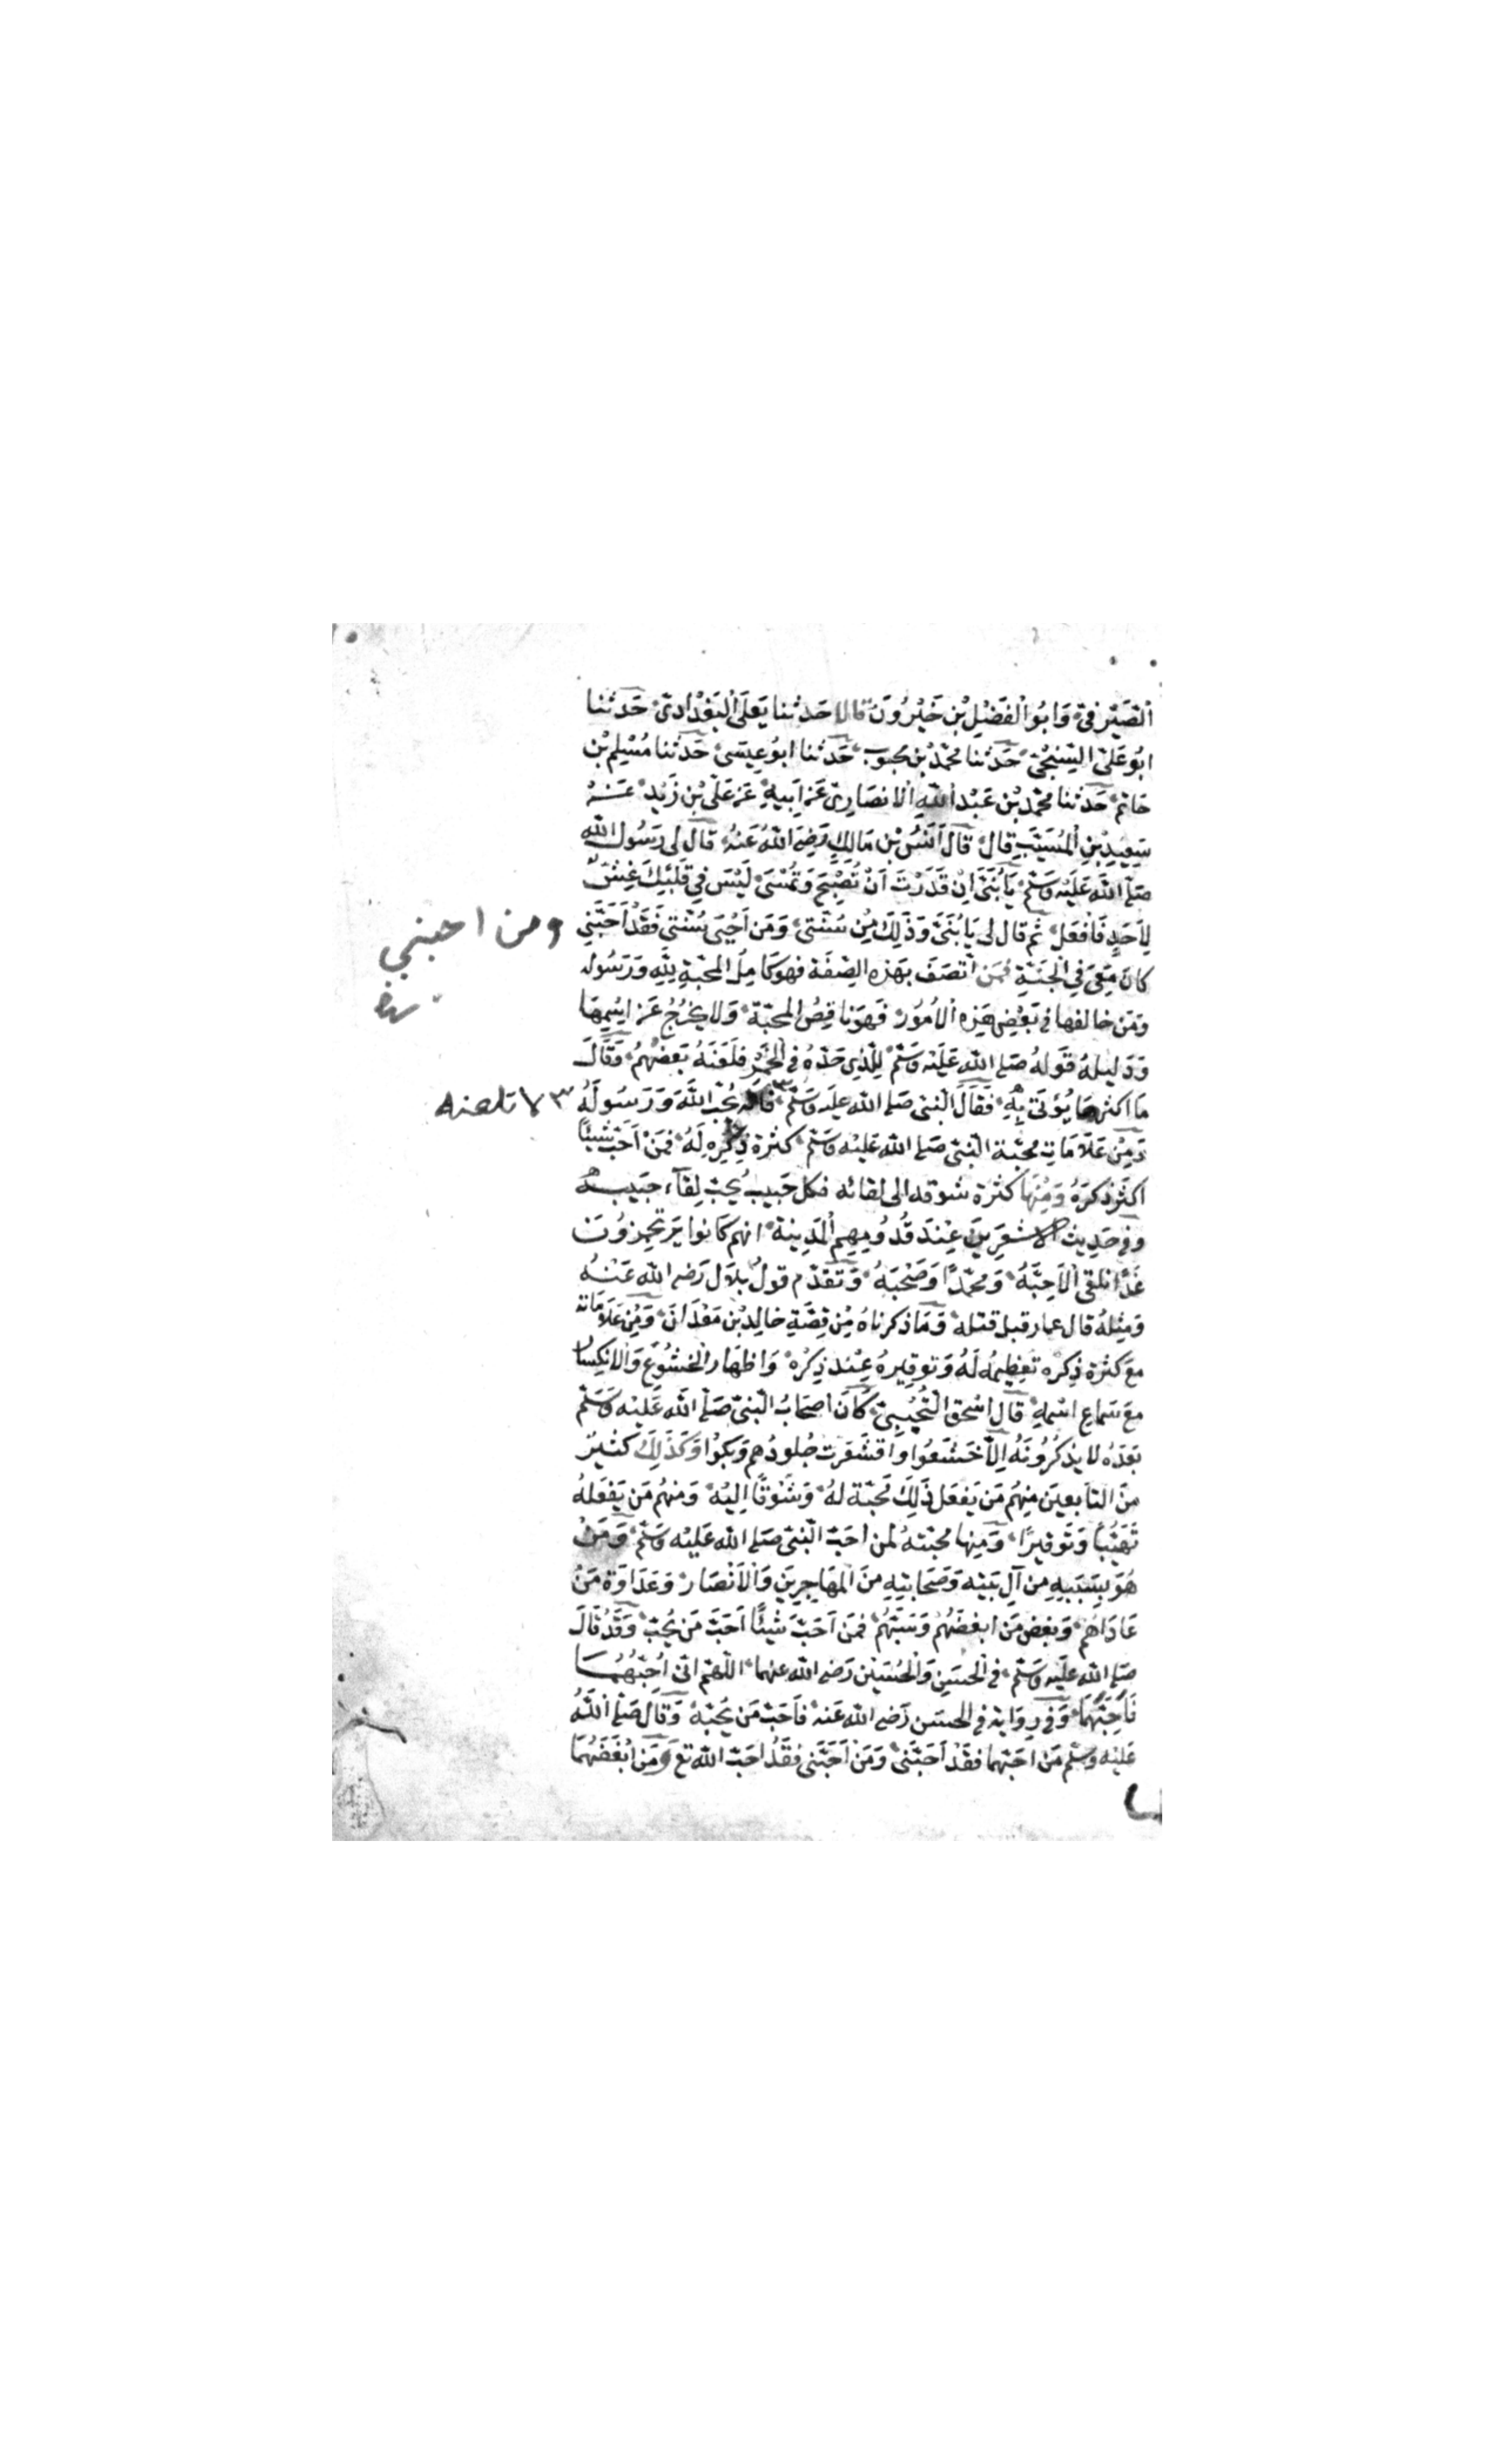 الصَّيْرفيّ وَابُو الْفَضْلِ بْن خَيْرُونَ قالا حَدثنا يَعلَى الْبَغْدَادِىّ حَدثنا
ابُو عَلىّ السِّنجْىّ حَدثنا محمّد بْن محبوب حَدثنا ابُو عِيسَى حَدثنا مُسْلِم بْن
حَاتم حَدثنا محمّد بْن عَبْد اللهِ الانصَارِىّ عَن اَبيهِ عَن عَلىّ بْن زَيْد عَنْ
سَعِيدِ بْنِ الْمُسَيَّبِ قال قالَ اَنَسُ بْن مَالكٍ رَضِىَ اللهُ عَنهُ قال لى رَسُول الله
صَلى الله عَلَيْه وَسَلّم يَا بُنَىَّ اِنْ قَدَرْتَ اَنْ تُصْبِحَ وَتُمْسَىَ لَيْسَ فِي قَلْبِكَ غِشّ
لِاَحَدٍ فَافعَلْ ثم قال لى يَا بُنَىَّ وَذَلِكَ مِنْ سُنَّتىِ وَمَن اَحْيَى سُنَّتى فَقَدْ اَحَبَّنِي
ومن احبني
كانَ مَعِىَ فِي الْجَنَّةِ فمَن اتصَفَ بِهَذِهِ الصِّفَة فهوَ كَامِلُ المحَبَّةِ لِلّهِ وَرَسُوله
وَمَن خالفها فى بَعْضِ هَذِهِ الاُمُورْ فَهوَ نَاقِصُ المحَبَّة وَلا يخْرُجُ عَن اسْمِهَا
وَدَليلهُ قَولهُ صَلى الله عَليْه وَسَلّمْ لِلّذِى حَدّهُ فى الخَمْر فَلَعَنَهُ بَعضُهُم وَقَالَ
مَا اكثر مَا يُؤتَى بِهِ فَقَالَ النبى صَلى الله عَليه وَسَلّم فَانه يُحبّ اللهَ وَرَسُولَهُ
لا تلعنه
وَمِنْ عَلاَمَاتِ مَحبَّة النّبىّ صَلى الله عَليْه وَسَلّم كثرة ذِكْرِهِ لَهُ فمَنْ اَحَبّ شَيئًا
اكثَر ذكرَهُ وَمِنهَا كثرَة شوقه الى لقائه فكل حَبيب يُحبّ لِقآءَ حَبيبه
وفى حَدِيث الاشعَرِيينَ عِنْدَ قُدُومِهِم المَدِينة انهم كَانوا يَرتَجِزوُنَ
غَدًا نلقى الاَحِبَّهْ وَمحَمّدًا وَصَحْبَهْ وَتَقدّم قولُ بلاَل رَضى الله عَنْهُ
وَمِثلهُ قال عمار قبل قتله وَمَا ذكرنَاهُ مِنْ قِصَّةِ خالِد بْن مَعْدَانَ وَمِن عَلاَمَاته
مَعَ كثرَة ذِكرْه تعظِيمُه لَهُ وَتوقِيرهُ عِنْدَ ذِكرْهْ وَاظهَار الخشُوُعِ وَالانكِسَار
مَعَ سَمَاع اسْمِهِ قالَ اسْحق التُّجِيبِىّ كَانَ اصحَابُ النّبىّ صَلّى الله عَليْه وَسَلّم
بَعدَهُ لا يذكُرُونَهُ اِلاَّ خَشَعُوا وَاقشَعَرت جلودُهم وَبكوْا وَكَذَلِكَ كثيرٌ
مِنَ التابعينَ مِنهُم مَن يَفعَل ذَلِكَ محَبّة لهُ وَشَوْقًا اِليْه وَمنهُم مَن يَفعَلهُ
تهَيّبًا وَتَوقيرًا وَمِنها محبّتهُ لمن احَبَّ النّبىّ صَلى الله عَليْه وَسَلّم وَمَنْ
هُوَ بِسَبَبِهِ مِن آلِ بَيْته وَصَحَابَتِهِ مِنَ المهَاجِرِينَ وَالاَنصَار وَعَدَاوَة مَنْ
عَادَاهُم وَبغض مَن ابغَضَهُم وَسَبّهُم فمَن اَحَبّ شَيْئًا اَحَبّ مَن يُحبّ وَقَدْ قَالَ
صَلى الله عَليْه وَسَلّم فى الحَسَن وَالحُسَيْن رَضى الله عنهما اللّهم انّى اُحِبّهُمَا
فَاَحِبَّهُمَا وَفى رِوَاية فى الحسَن رَضى الله عَنهْ فاَحَبّ مَن يُحبّهُ وَقال صَلّى اللهُ
عَليْه وسَلم مَن احَبّهما فقَدْ اَحَبّنى وَمَن اَحَبّنى فَقَد احَبّ الله تع وَمَن ابْغَضَهُمَا